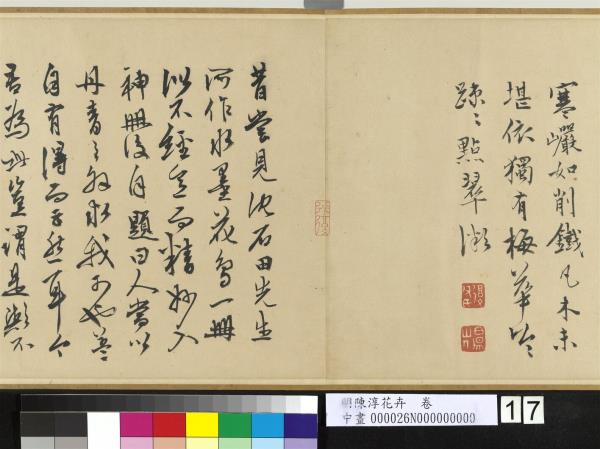 寒巖如削鐵凡木未
堪依獨有梅華
疎〻點翠微
昔嘗見沈石田先生
所作水墨花鳥一冊
似不經意而精妙入
神冊後自題曰人當以
丹青之外求我可也蓋
自有得而云然耳今
吾為此豈謂是歟不
明陳淳花卉 卷
中畫 000026N000000000
17